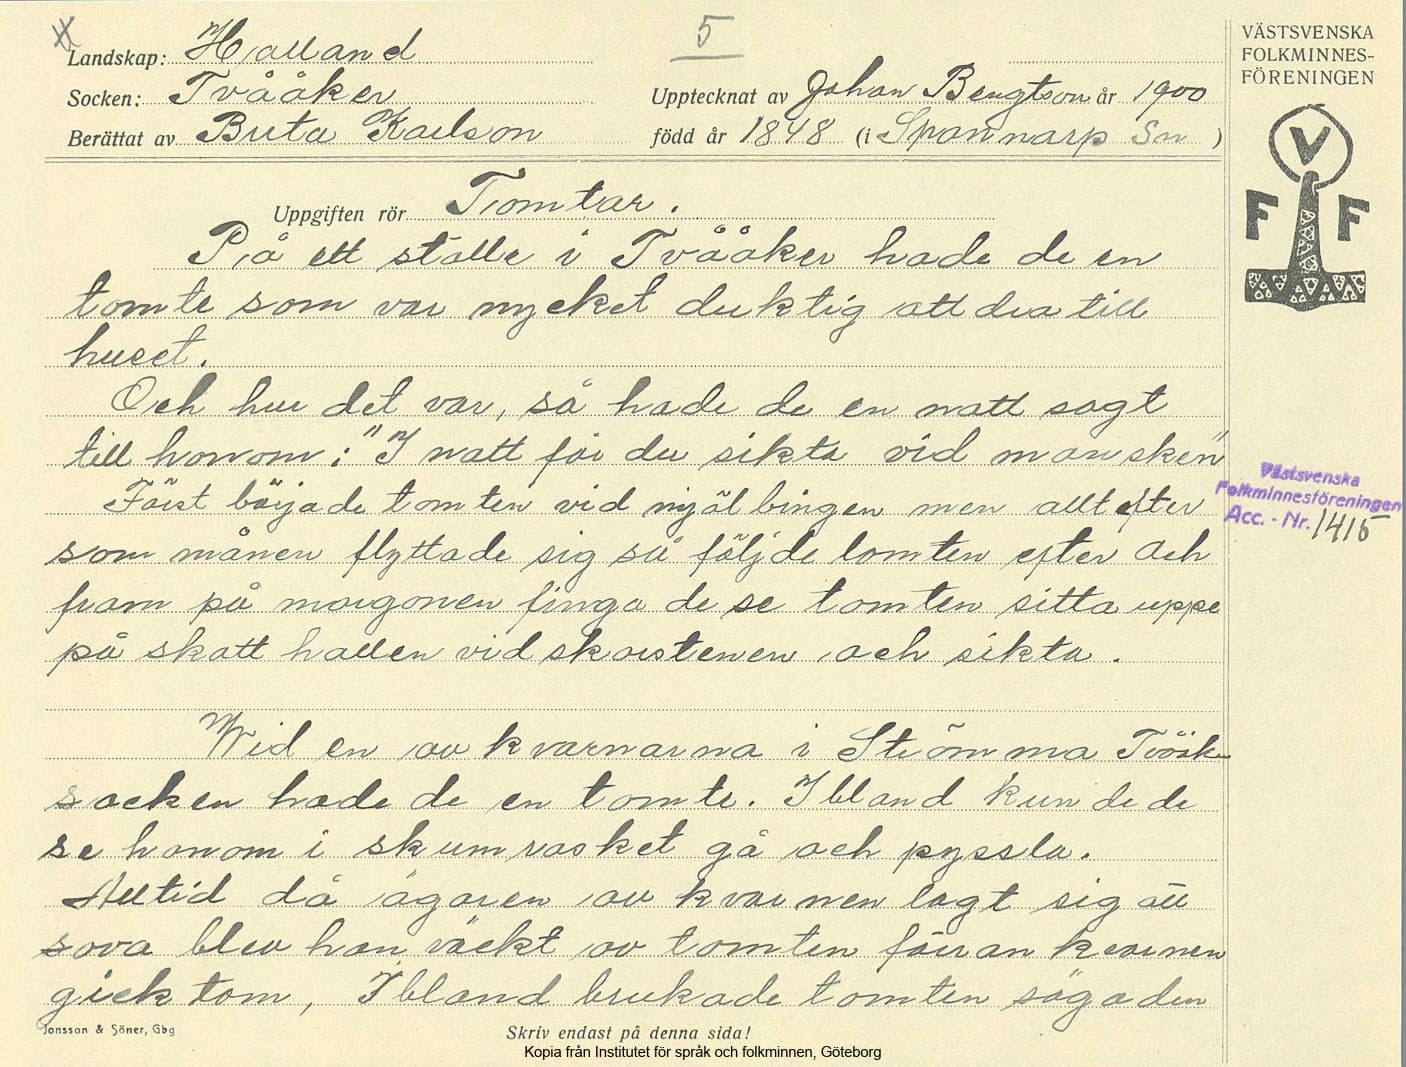 5
Landskap: Halland
Socken: Tvååker
Upptecknat av Johan Bengtson år 1900
Berättat av Brita Karlson
född år 1848 (i Spannarp Sn )
VÄSTSVENSKA
FOLKMINNES-
FÖRENINGEN
V
F F
Uppgiften rör Tomtar.
På ett ställe i Tvååker hade de en
tomte som var mycket duktig att dra till
huset.
Och hur det var, så hade de en natt sagt
till honom: "I natt får du sikta vid månsken"
Först började tomten vid mjölbingen men allt efter
som månen flyttade sig så följde tomten efter och
fram på morgonen finga de se tomten sitta uppe
på skatt hallen vid skorstenen och sikta.
Västsvenska
Folkminnesföreningen
Acc. - Nr. 1415
Wid en av kvarnarna i Strömma Tvååk
socken hade de en tomte. Ibland kunde de
se honom i skumrasket gå och pyssla.
Alltid då ägaren av kvarnen lagt sig att
sova blev han väckt av tomten förran kvarnen
gick tom, Ibland brukade tomten säga den
Jonsson & Söner, Gbg
Skriv endast på denna sida!
Kopia från Institutet för språk och folkminnen, Göteborg